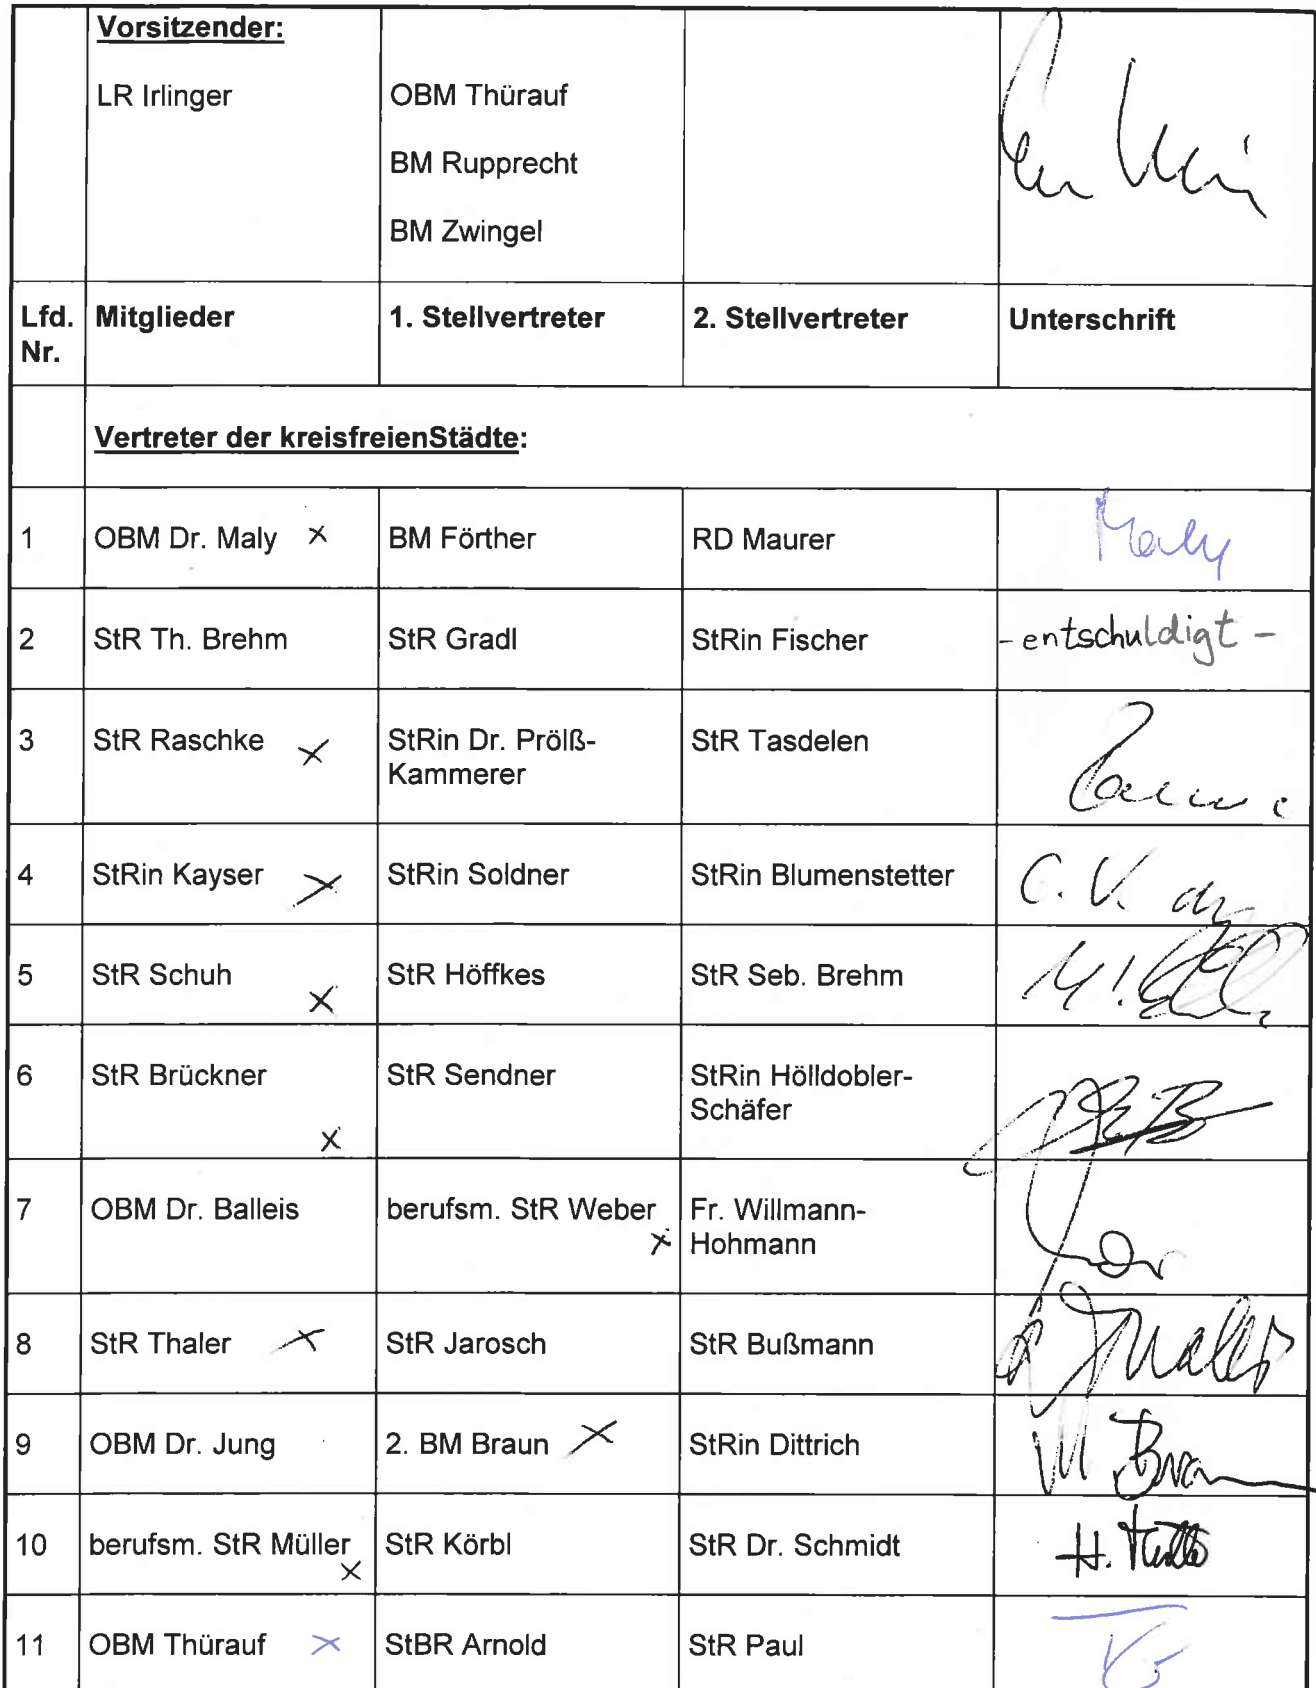 Vorsitzender:
LR Irlinger OBM Thürauf
BM Rupprecht
BM Zwingel
Lfd. Mitglieder 1. Stellvertreter 2. Stellvertreter Unterschrift
Nr.
Vertreter der kreisfreienStädte:
1 OBM Dr. Maly x BM Förther RD Maurer Maly
2 StR Th. Brehm StR Gradl StRin Fischer - entschuldigt -
3 StR Raschke x StRin Dr. Prölß- StR Tasdelen
Kammerer
4 StRin Kayser x StRin Soldner StRin Blumenstetter
5 StR Schuh x StR Höffkes StR Seb. Brehm
6 StR Brückner x StR Sendner StRin Hölldobler-
Schäfer
7 OBM Dr. Balleis berufsm. StR Weber x Fr. Willmann-
Hohmann
8 StR Thaler x StR Jarosch StR Bußmann
9 OBM Dr. Jung 2. BM Braun x StRin Dittrich M Braun
10 berufsm. StR Müller x StR Körbl StR Dr. Schmidt
11 OBM Thürauf x StBR Arnold StR Paul